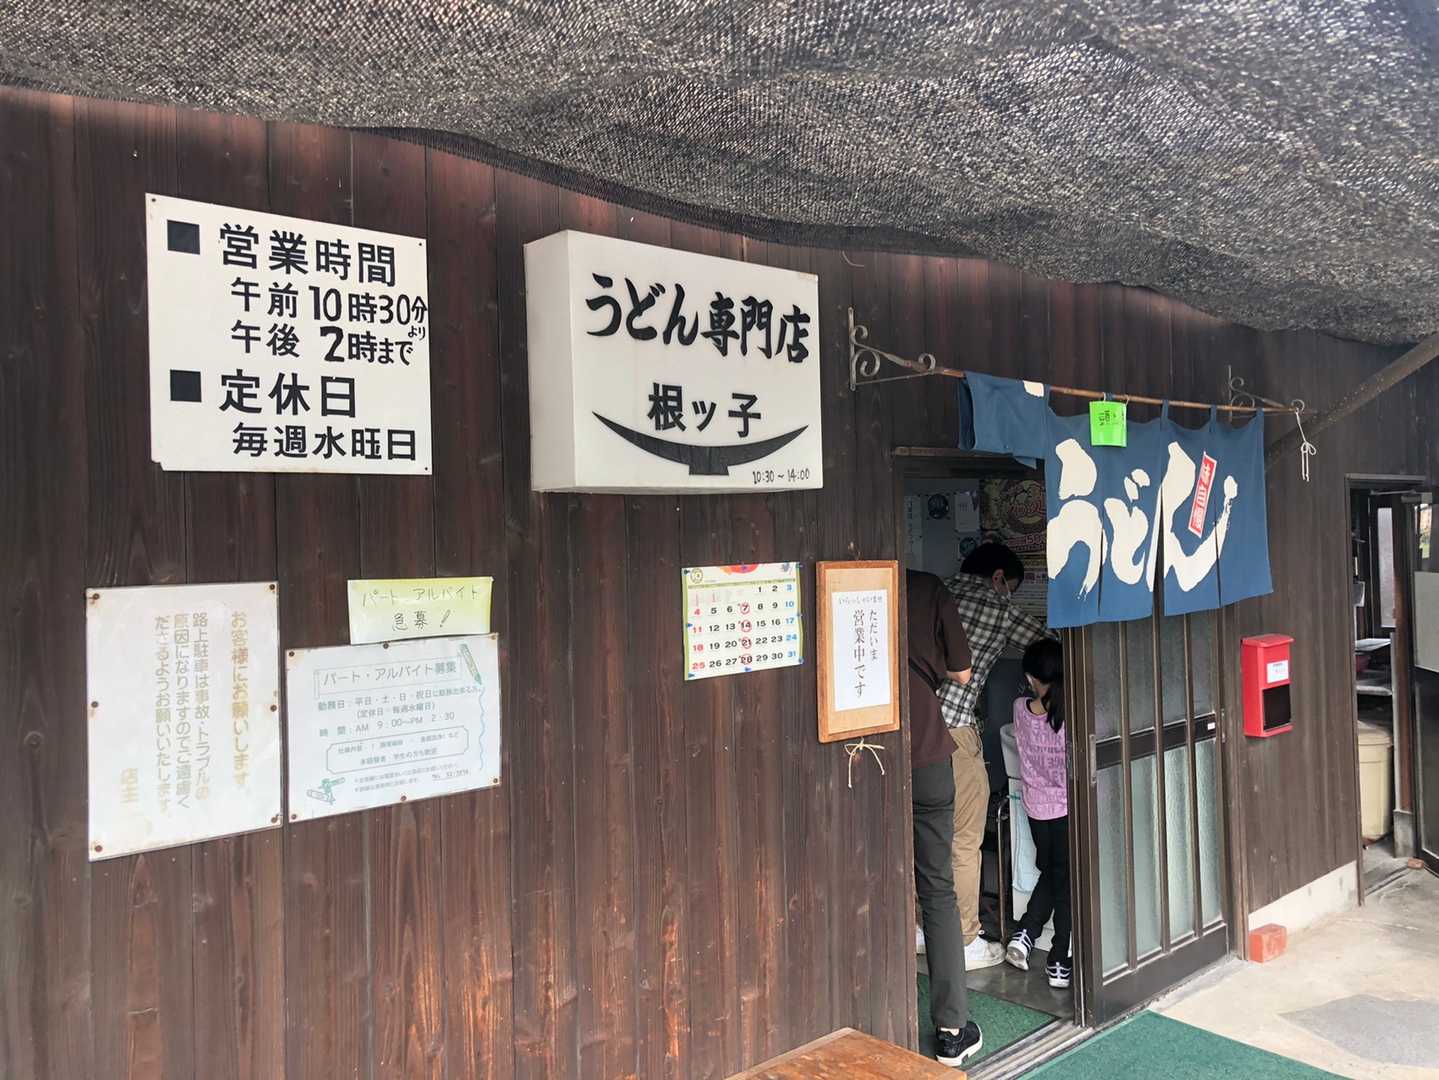 ■ 営業時間
午前 10時30分より
午後 2時まで
■ 定休日
毎週水旺日
うどん専門店
根ッ子
10:30 ~ 14:00
うどん
パート アルバイト
急募!
パート・アルバイト募集
勤務日:平日・土・日・祝日に勤務出来る方
(定休日・毎週水曜日)
時 間:AM 9:00〜PM 2:30
お客様にお願いします。
路上駐車は事故・トラブルの
原因になりますのでご遠慮く
ださるようお願いいたします。
店主
10
1 2 3
4 5 6 7 8 9 10
11 12 13 14 15 16 17
18 19 20 21 22 23 24
25 26 27 28 29 30 31
いらっしゃいませ
ただいま
営業中です